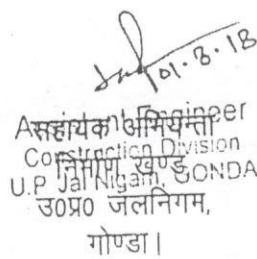 01.8.18
Assistant Engineer
सहायक अभियन्ता
Construction Division
निर्माण खण्ड
U.P Jal Nigam, GONDA
उ०प्र० जलनिगम,
गोण्डा।